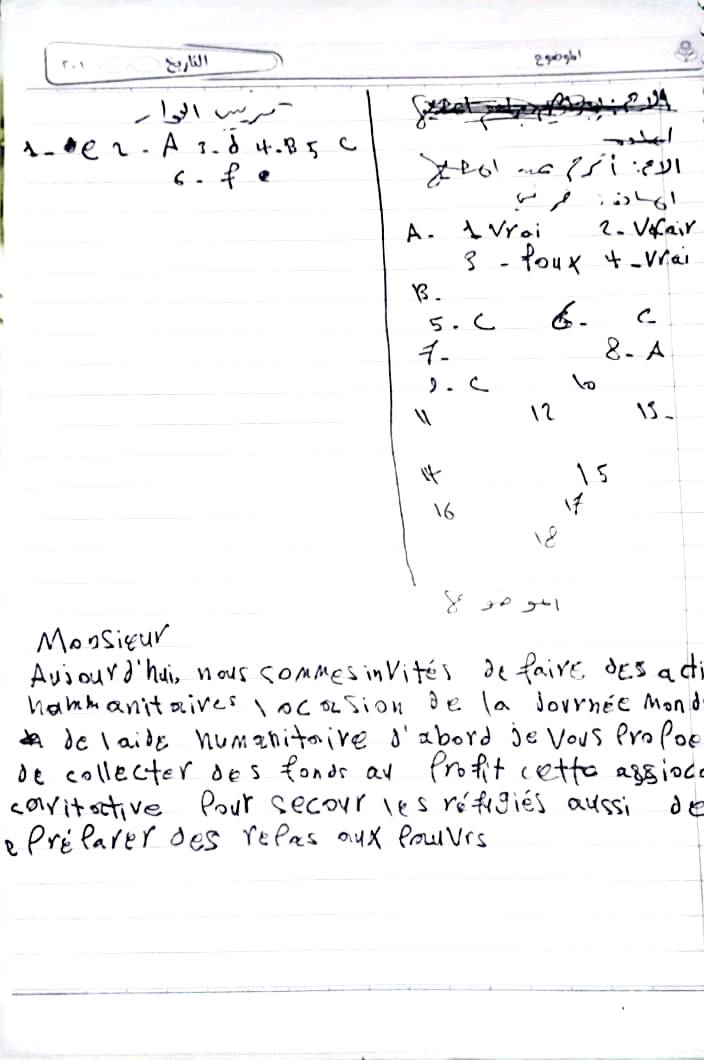 الموضوع
التاريخ
٢٠١
الاسم:
المادة:
A. 1 Vrai 2- Vrai
3 - foux 4 - Vrai
B.
5. C 6- C
7- 8- A
9. C 10
11 12 13-
14 15
16 17
18
1- e 2 - A 3- d 4-B 5 C
6- f e
الموضوع
Monsieur
Aujourd'hui, nous sommes invités de faire des acti
hammanitaires l'occasion de la Journée Mond
de laide humanitaire d'abord je Vous Propoe
de collecter des fonds au Profit cette assioc
caritative Pour secour les réfigiés aussi de
Préparer des repas aux Pouvrs